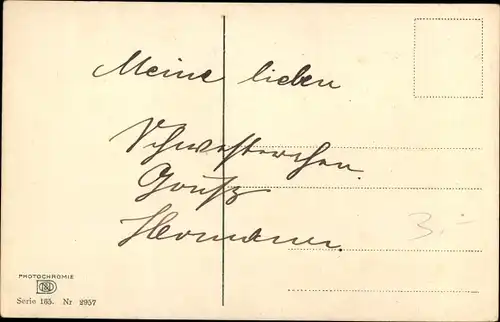 Meine lieben
Schwesterchen.
Gruß
Hermann.
3.-
PHOTOCHROMIE
Serie 185. Nr 2957